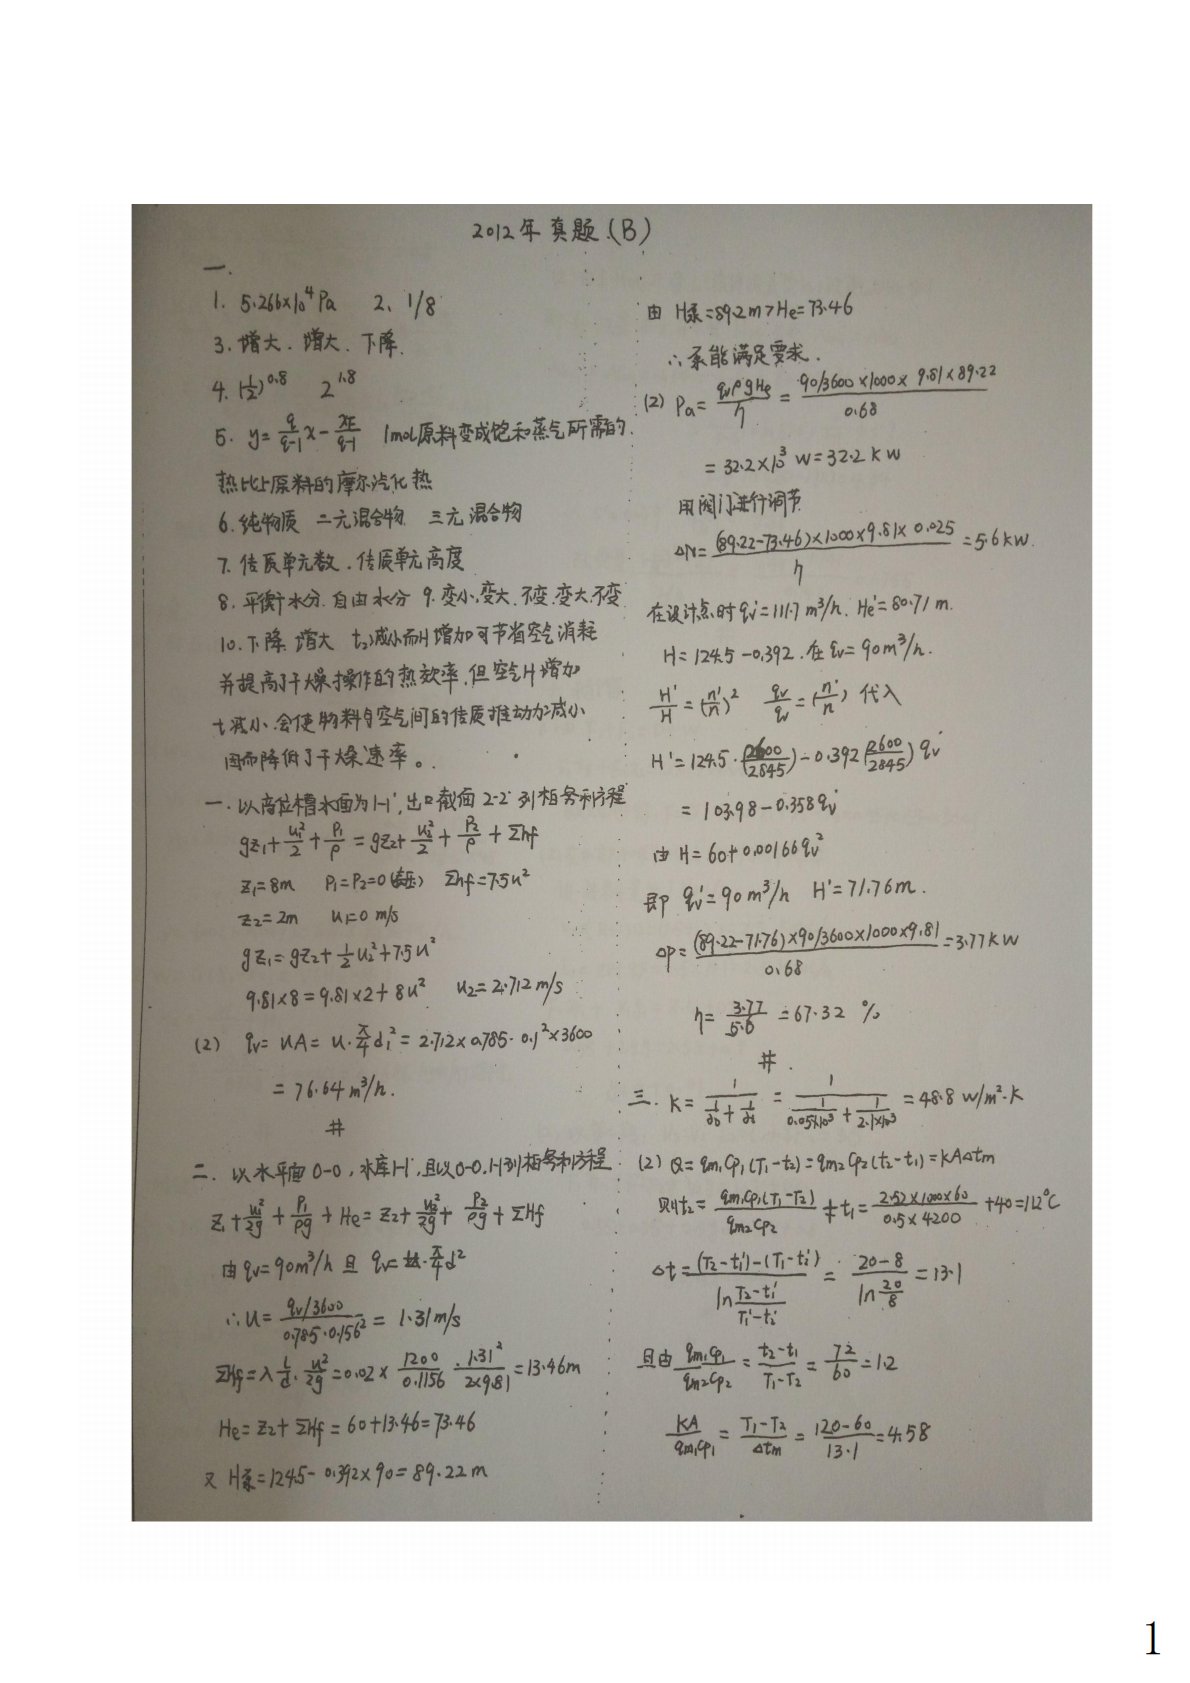 2012年真题(B)
一.
1. 5.266×10⁴Pa 2、1/8
3. 增大. 增大、下降.
4. (1/2)^0.8 2^1.8
5. y = q/(q-1) x - xF/(q-1) 1mol原料变成饱和蒸气所需的
热比上原料的摩尔汽化热
6. 纯物质 二元混合物 三元混合物
7. 传质单元数. 传质单元高度
8. 平衡水分 自由水分 9. 变小.变大.不变.变大.不变
10. 下降. 增大 t₂减小而H增加可节省空气消耗
并提高了干燥操作的热效率,但空气H增加
t减小.会使物料与空气间的传质推动力减小
因而降低了干燥速率。
一. 以高位槽水面为1-1',出口截面2-2'列柏努利方程
gz₁ + u₁²/2 + P₁/ρ = gz₂ + u₂²/2 + P₂/ρ + Σhf
z₁=8m P₁=P₂=0(表压) Σhf=7.5u²
z₂=2m u₁=0 m/s
gz₁=gz₂+½u₂²+7.5u²
9.81×8=9.81×2+8u² u₂=2.712 m/s
(2) qv= uA= u·π/4 d₁² = 2.712×0.785·0.1²×3600
= 76.64 m³/h.
#
二. 以水平面0-0,水库1-1',且以0-0,1-1列柏努利方程
z₁ + u₁²/2g + P₁/ρg + He = z₂ + u₂²/2g + P₂/ρg + ΣHf
由qv=90m³/h 且 qv=u·π/4 d²
∴u = (qv/3600)/(0.785·0.156²) = 1.31m/s
ΣHf = λ l/d · u²/2g = 0.02 × 1200/0.1156 · 1.31²/(2×9.81) = 13.46m
He = z₂+ ΣHf = 60+13.46=73.46
又 H泵=124.5- 0.392×90=89.22m
由 H泵=89.2m>He=73.46
∴泵能满足要求.
(2) Pa = qvρgHe/η = (90/3600×1000×9.81×89.22)/0.68
= 32.2×10³ W=32.2 kW
用阀门进行调节
ΔN = ((89.22-73.46)×1000×9.81×0.025)/η = 5.6kW.
在设计点时qv'=111.7 m³/h. He'=80.71 m.
H= 124.5-0.392.在qv=90m³/h.
H'/H = (n'/n)² qv'/qv = (n'/n) 代入
H'=124.5·(2600/2845)-0.392(2600/2845)qv'
= 103.98-0.358qv'
由H=60+0.00166qv²
即 qv'=90m³/h H'=71.76m.
ΔP = ((89.22-71.76)×90/3600×1000×9.81)/0.68 = 3.77kW
η = 3.77/5.6 = 67.32 %
#.
三. K = 1/(1/α₀+1/αi) = 1/(1/(0.05×10³)+1/(2.1×10³)) = 48.8 w/m²·K
(2) Q=qm₁Cp₁(T₁-t₂)=qm₂Cp₂(t₂-t₁)=KAΔtm
则t₂ = qm₁Cp₁(T₁-T₂)/(qm₂Cp₂) + t₁ = (2.52×1000×60)/(0.5×4200) +40=112℃
Δt = ((T₂-t₁')-(T₁-t₂'))/(ln (T₂-t₁')/(T₁'-t₂')) = (20-8)/(ln 20/8) = 13.1
且由 qm₁Cp₁/(qm₂Cp₂) = (t₂-t₁)/(T₁-T₂) = 72/60 = 1.2
KA/(qm₁Cp₁) = (T₁-T₂)/Δtm = (120-60)/13.1 = 4.58
1